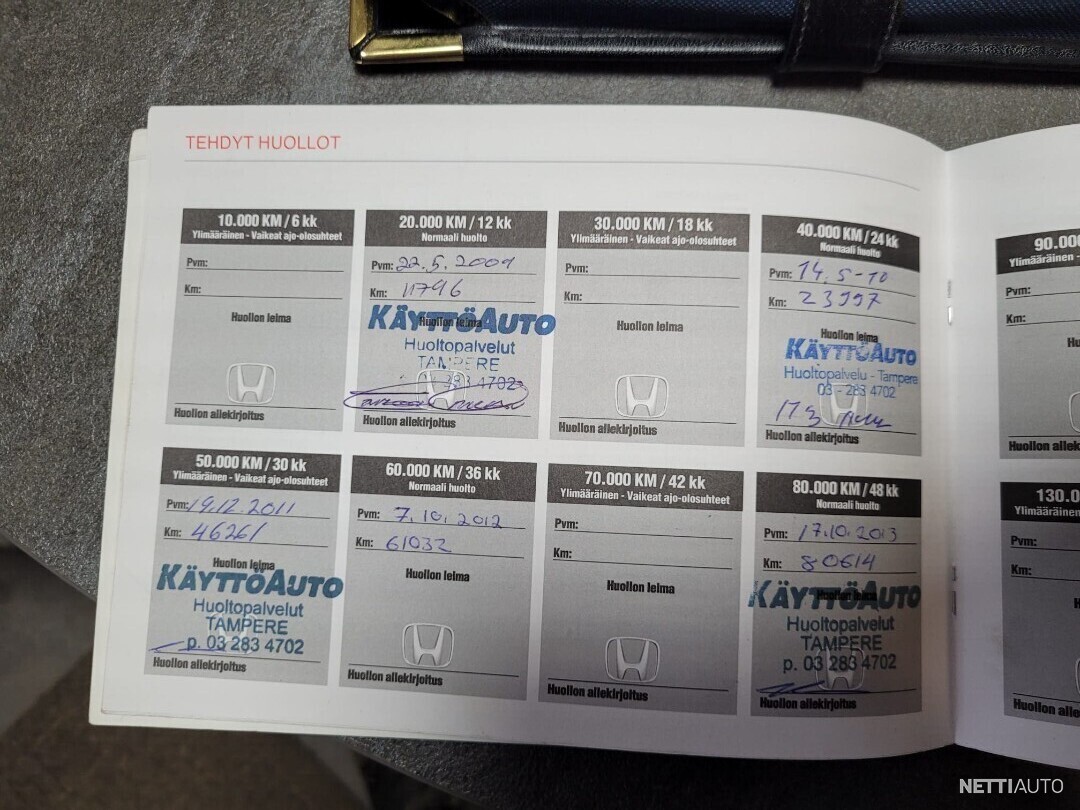 TEHDYT HUOLLOT
10.000 KM / 6 kk
Ylimääräinen - Vaikeat ajo-olosuhteet
Pvm:
Km:
Huollon leima
Huollon allekirjoitus
20.000 KM / 12 kk
Normaali huolto
Pvm: 22.5.2009
Km: 11796
Huollon leima
KÄYTTÖAUTO
Huoltopalvelut
TAMPERE
283 4702
Huollon allekirjoitus
30.000 KM / 18 kk
Ylimääräinen - Vaikeat ajo-olosuhteet
Pvm:
Km:
Huollon leima
Huollon allekirjoitus
40.000 KM / 24 kk
Normaali huolto
Pvm: 14.5-10
Km: 23997
Huollon leima
KÄYTTÖAUTO
Huoltopalvelu - Tampere
03 - 283 4702
Huollon allekirjoitus
50.000 KM / 30 kk
Ylimääräinen - Vaikeat ajo-olosuhteet
Pvm: 19.12.2011
Km: 46261
Huollon leima
KÄYTTÖAUTO
Huoltopalvelut
TAMPERE
p. 03 283 4702
Huollon allekirjoitus
60.000 KM / 36 kk
Normaali huolto
Pvm: 7.10.2012
Km: 61032
Huollon leima
Huollon allekirjoitus
70.000 KM / 42 kk
Ylimääräinen - Vaikeat ajo-olosuhteet
Pvm:
Km:
Huollon leima
Huollon allekirjoitus
80.000 KM / 48 kk
Normaali huolto
Pvm: 17.10.2013
Km: 80614
Huollon leima
KÄYTTÖAUTO
Huoltopalvelut
TAMPERE
p. 03 283 4702
Huollon allekirjoitus
90.00
Ylimääräinen -
Pvm:
Km:
Hu
Huollon alle
130.0
Ylimääräinen
Pvm:
Km:
Hu
Huollon alle
NETTIAUTO